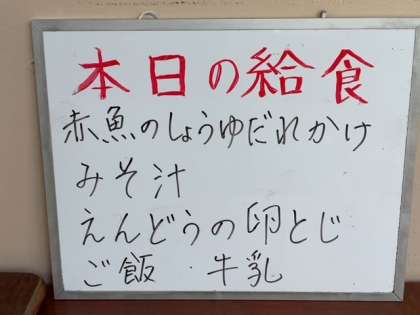 本日の給食
赤魚のしょうゆだれかけ
みそ汁
えんどうの卵とじ
ご飯・牛乳